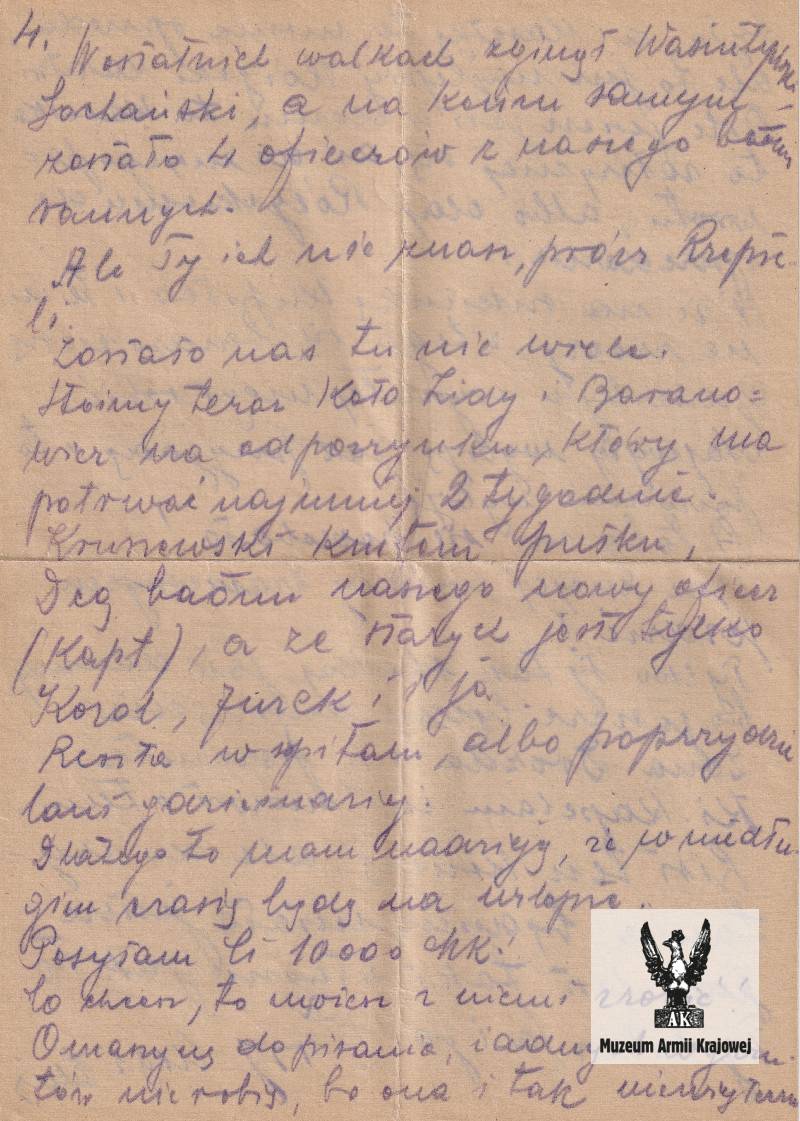 4.
W ostatnich walkach zginął Wasiutyński
Sochański, a na koniu rannym
zostało 4 oficerów z naszego baonu
rannych.
Ale Ty ich nie znasz, prócz Rzepec-
ki.
Zostało nas tu nie wiele.
Stoimy teraz koło Lidy i Barano=
wicz na odpoczynku, który ma
potrwać najmniej 2 tygodnie.
Kruszewski pułku,
Dcą baonu naszego nowy oficer
(Kapt), a ze starych jest tylko
Korol, Jurek i ja
Reszta w szpitalu, albo poprzydzie
lani gdzieindziej.
Dlatego to mam nadzieję, że w niedłu-
gim czasię będę na urlopie.
Posyłam Ci 10000 Mk!
Co chcesz, to możesz z niemi zrobić!
O maszynę do pisania,
tów nie robię, bo ona i tak
AK
Muzeum Armii Krajowej